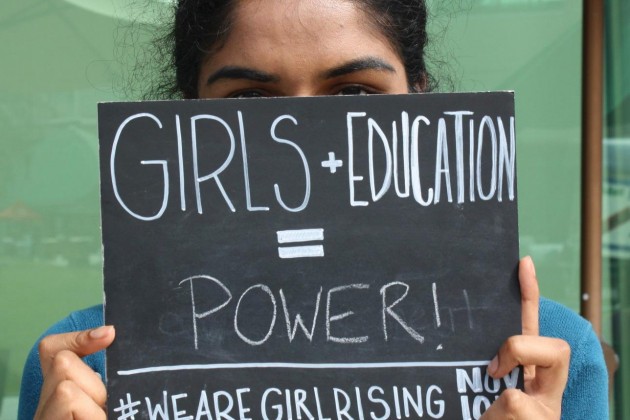 GIRLS + EDUCATION
=
POWER!
#WEAREGIRLRISING NOV
10